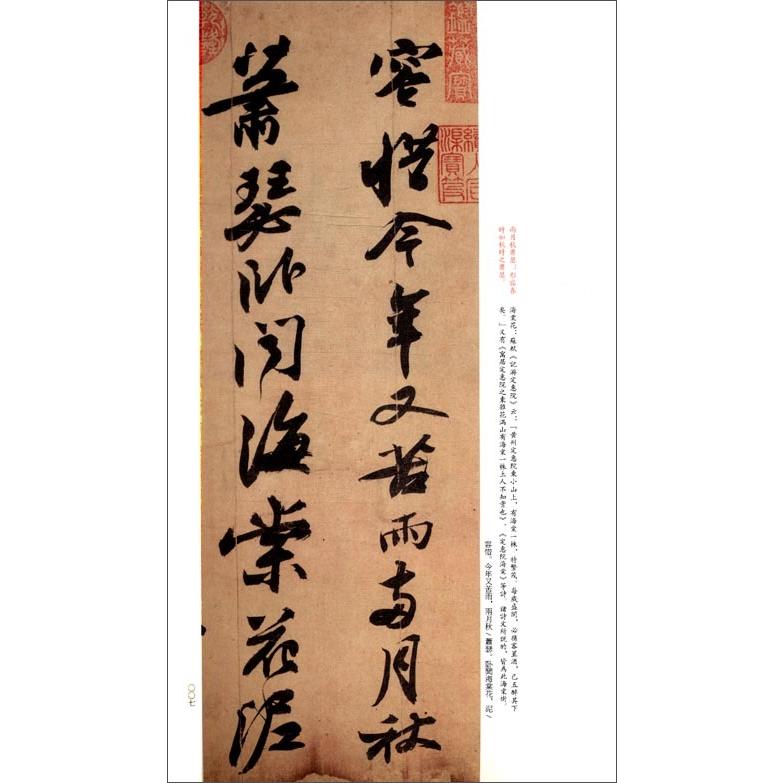 兩月秋蕭瑟：形容春
時如秋時之蕭瑟。
海棠花：蘇軾《記游定惠院》云：「黄州定惠院東小山上，有海棠一株，特繁茂，每歲盛開，必攜客置酒，已五醉其下
矣。」又有《寓居定惠院之東雜花滿山有海棠一株土人不知貴也》、《定惠院海棠》等詩，諸詩文所説的，皆為此海棠樹。
容惜。今年又苦雨，兩月秋\蕭瑟。卧聞海棠花，泥\
容惜今年又苦雨兩月秋
蕭瑟卧聞海棠花泥
〇〇七